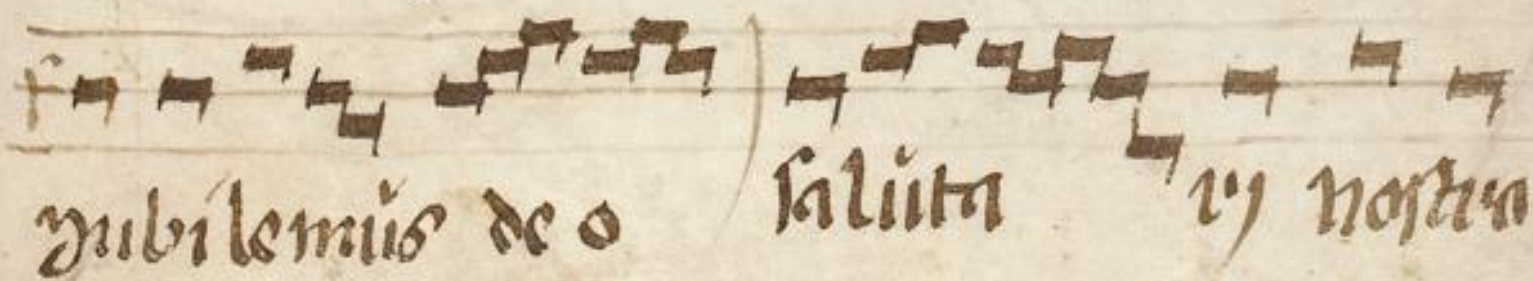 yubilemus deo saluta rj nostro